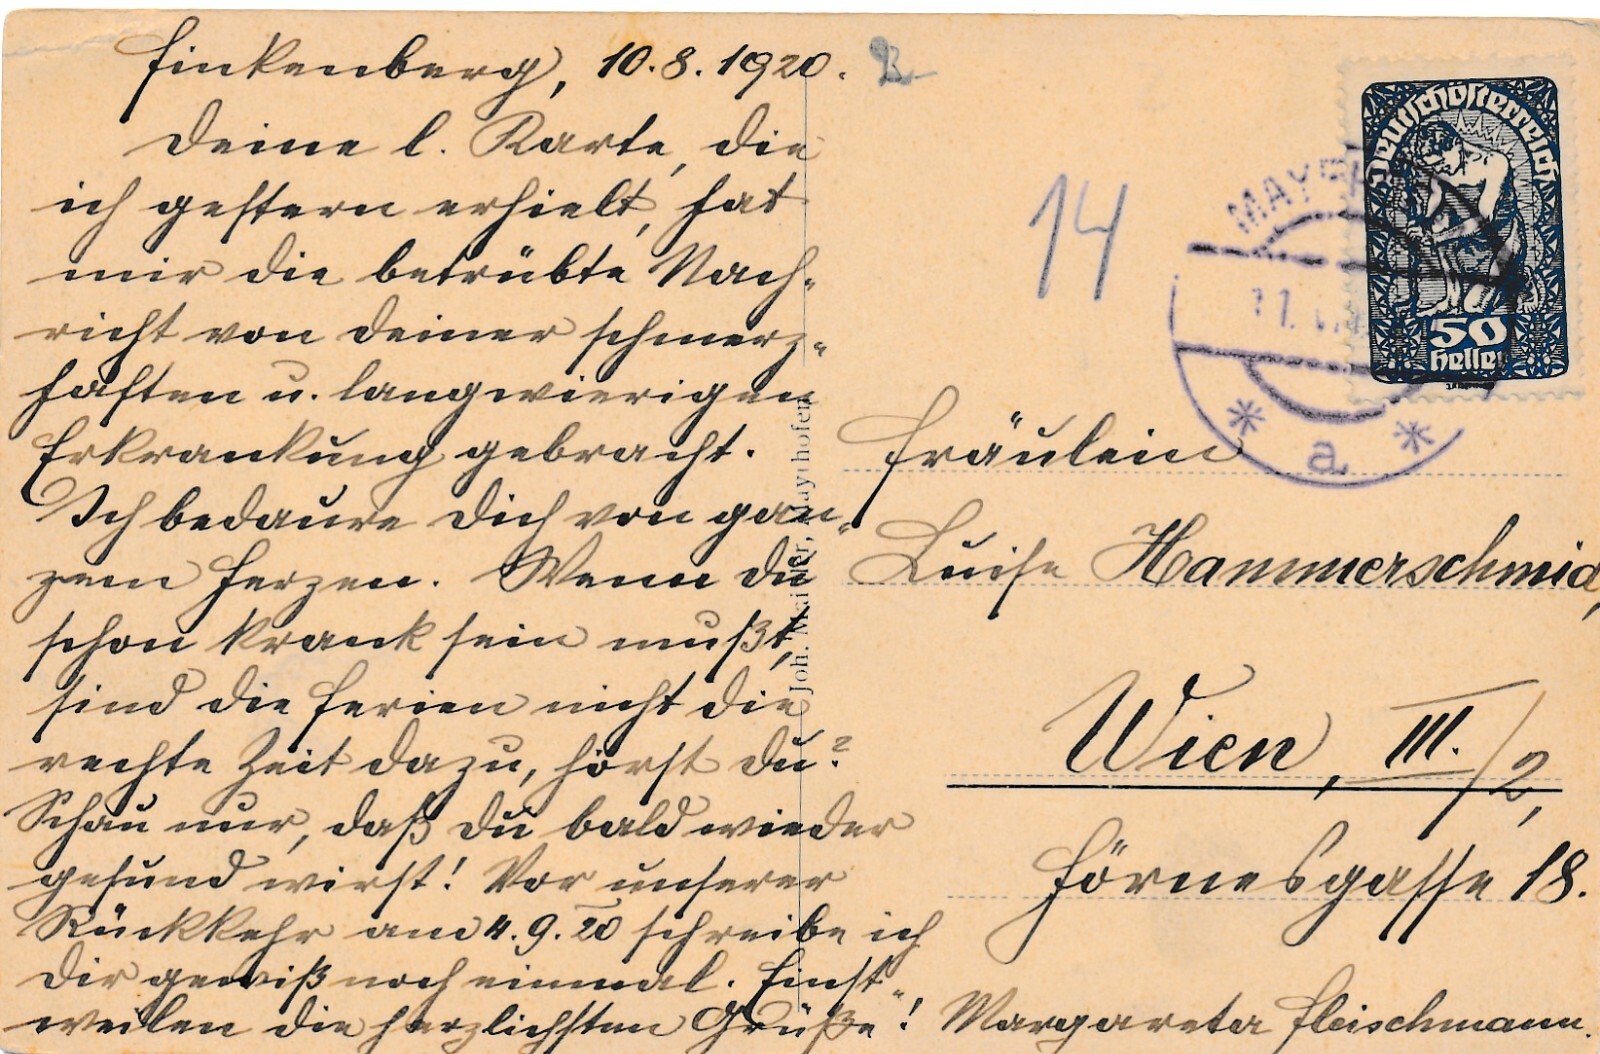 Finkenberg, 10.8.1920.
Deine l. Karte, die
ich gestern erhielt, hat
mir die betrübte Nach-
richt von Deiner schmerz-
haften u. langwierigen
Erkrankung gebracht.
Ich bedaure Dich von gan-
zem Herzen. Wenn Du
schon krank sein mußt,
sind die Ferien nicht die
rechte Zeit dazu, hörst Du?
Schau nur, daß Du bald wieder
gesund wirst! Vor unserer
Rückkehr am 4.9.20 schreibe ich
Dir gewiß noch einmal. Einst-
weilen die herzlichsten Grüße! Margareta Fleischmann.
Joh. Mayrhofen
14
Deutschösterreich
50
Heller
MAY
11.
* a *
Fräulein
Luise Hammerschmid,
Wien, III./2,
Hörnesgasse 18.